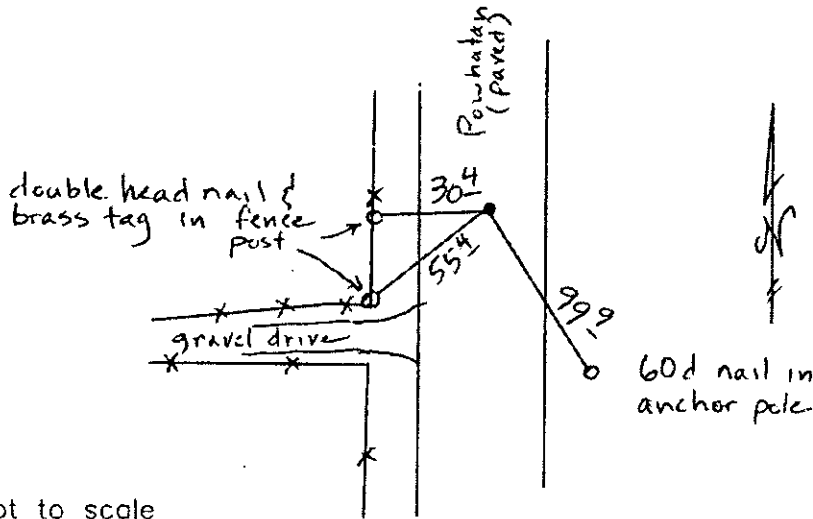 Powhatan
(paved)
double head nail &
brass tag in fence
post
30.4
55.4
99.9
gravel drive
N
60d nail in
anchor pole
ot to scale